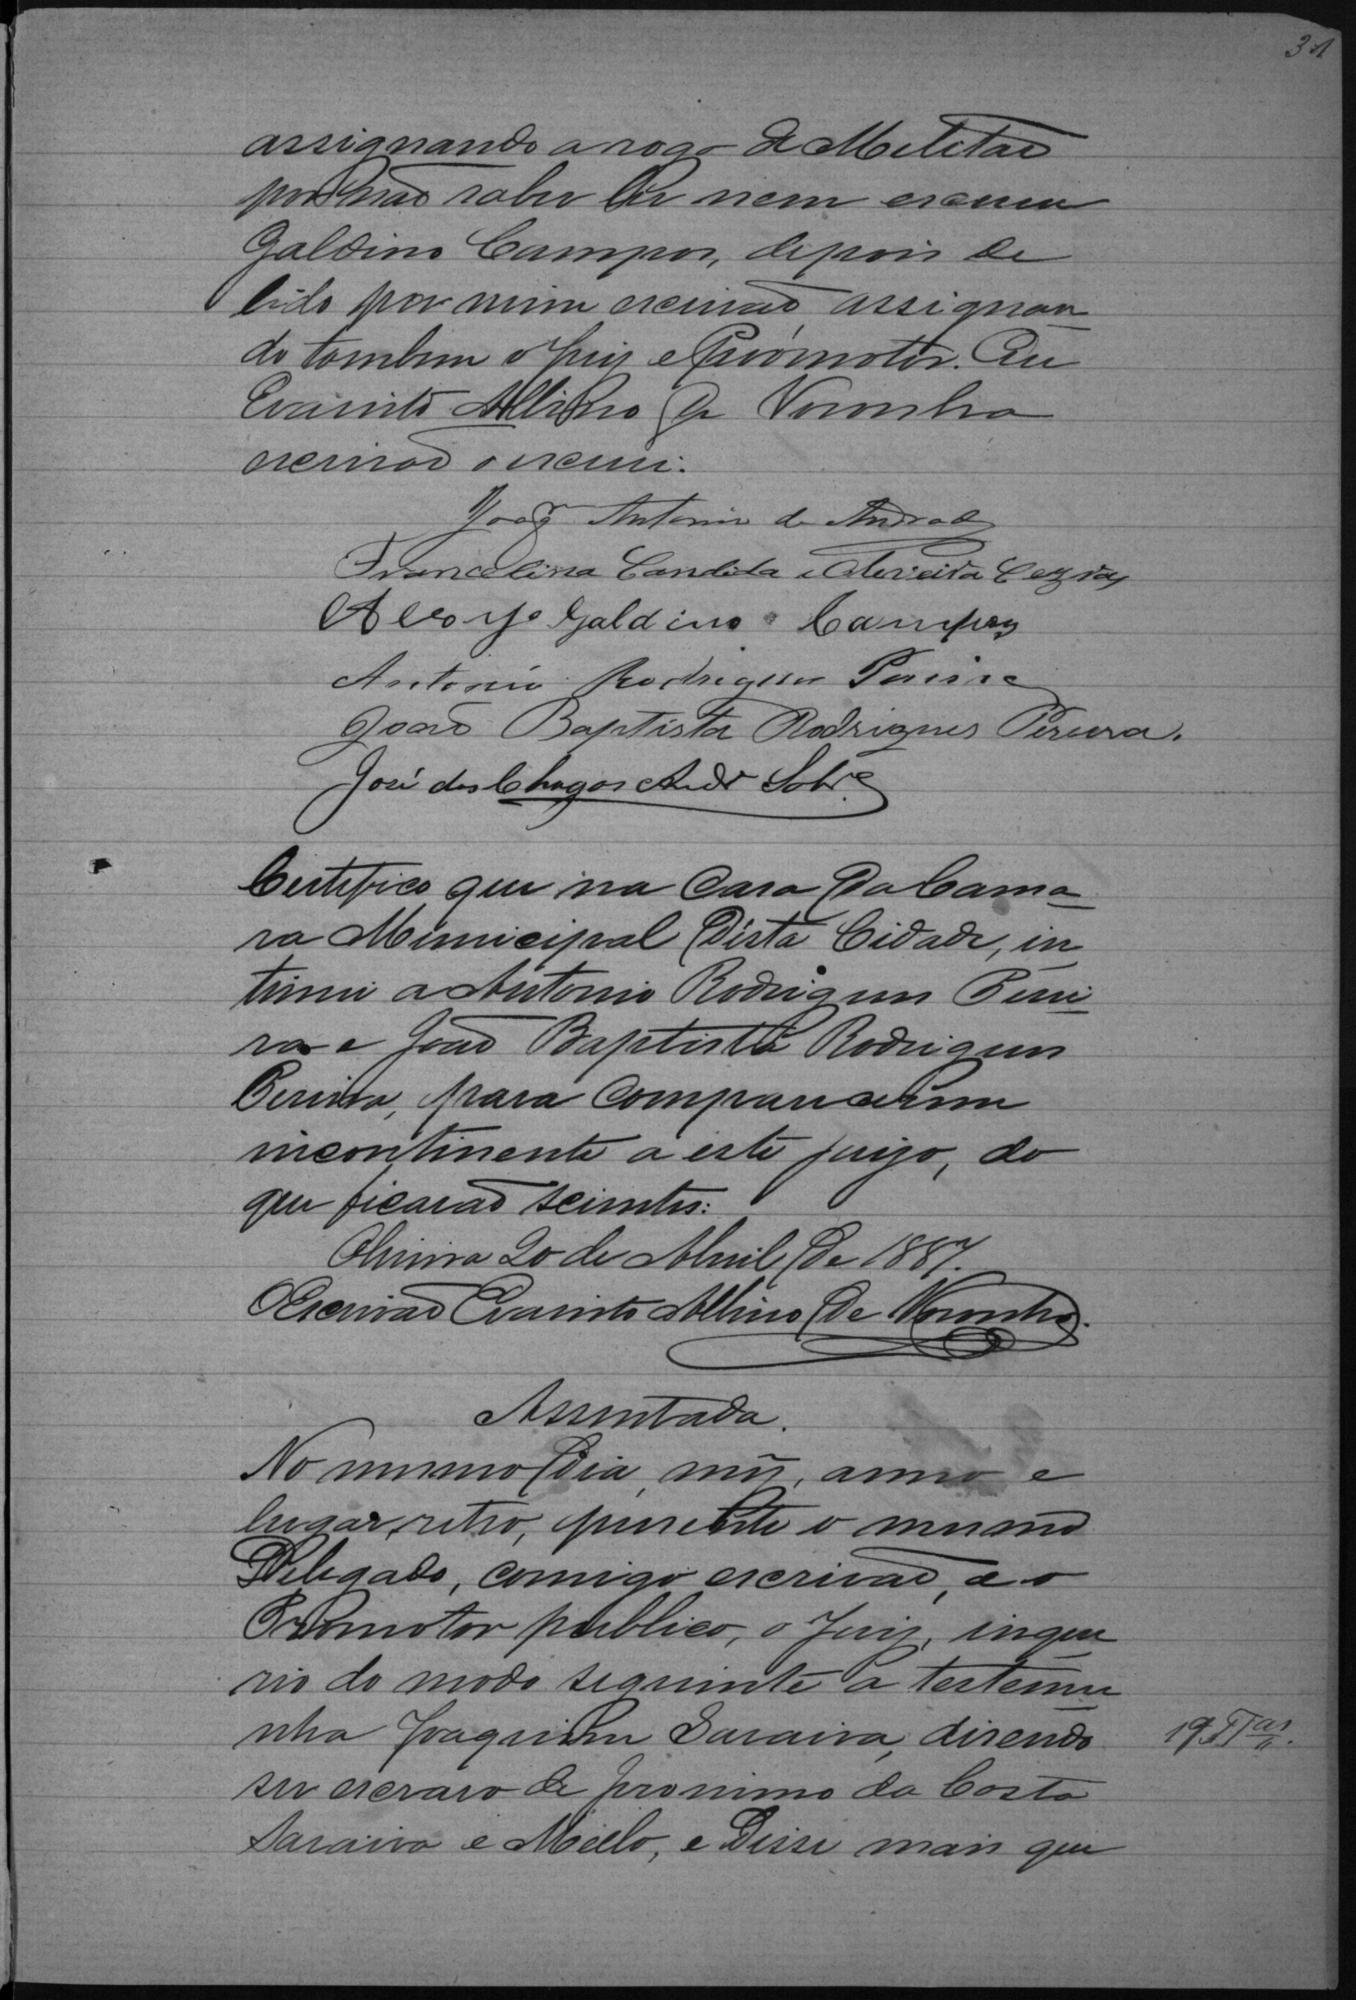 31
assignando a rogo de Melitão
por não saber ler nem escrever
Galdino Campos, depois de
lido por mim escrivão assignan
do tambem o Juiz e Promotor. Eu
Evaristo Albino de Noronha
escrivão o escrevi.
João Antonio de Andrade
Francelina Candida
Galdino Campos
Antonio Rodrigues Pereira
João Baptista Rodrigues Pereira.
José das Chagas Andr Sobr
Certifico que na Casa da Cama
ra Municipal desta Cidade, in
timei a Antonio Rodrigues Perei
ra e João Baptista Rodrigues
Pereira, para comparecerem
incontinente a este juizo, do
que ficarão scientes:
20 de Abril de 1887.
O Escrivão Evaristo Albino de Noronha.
Assentada.
No mesmo dia, mez, anno e
lugar, retro, presente o mesmo
Delegado, comigo escrivão, e o
Promotor publico, o Juiz, inque
rio do modo seguinte a testemu
nha Joaquim Saraiva, disendo
ser escravo de Jeronimo da Costa
Saraiva e Mello, e Disse mais que